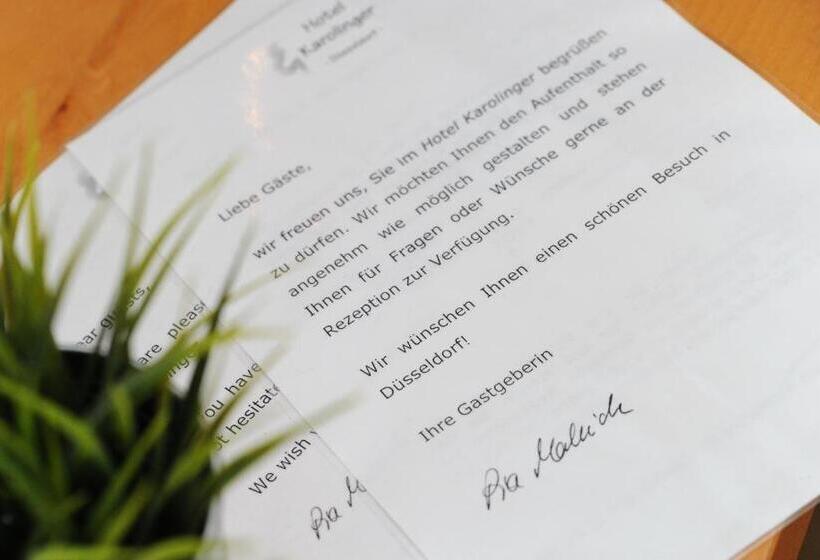 Hotel
Karolinger
Düsseldorf
Liebe Gäste,
wir freuen uns, Sie im Hotel Karolinger begrüßen
zu dürfen. Wir möchten Ihnen den Aufenthalt so
angenehm wie möglich gestalten und stehen
Ihnen für Fragen oder Wünsche gerne an der
Rezeption zur Verfügung.
Wir wünschen Ihnen einen schönen Besuch in
Düsseldorf!
Ihre Gastgeberin
Pia
ear guests,
are pleas
ou have
ot hesitate
We wish
Pia M